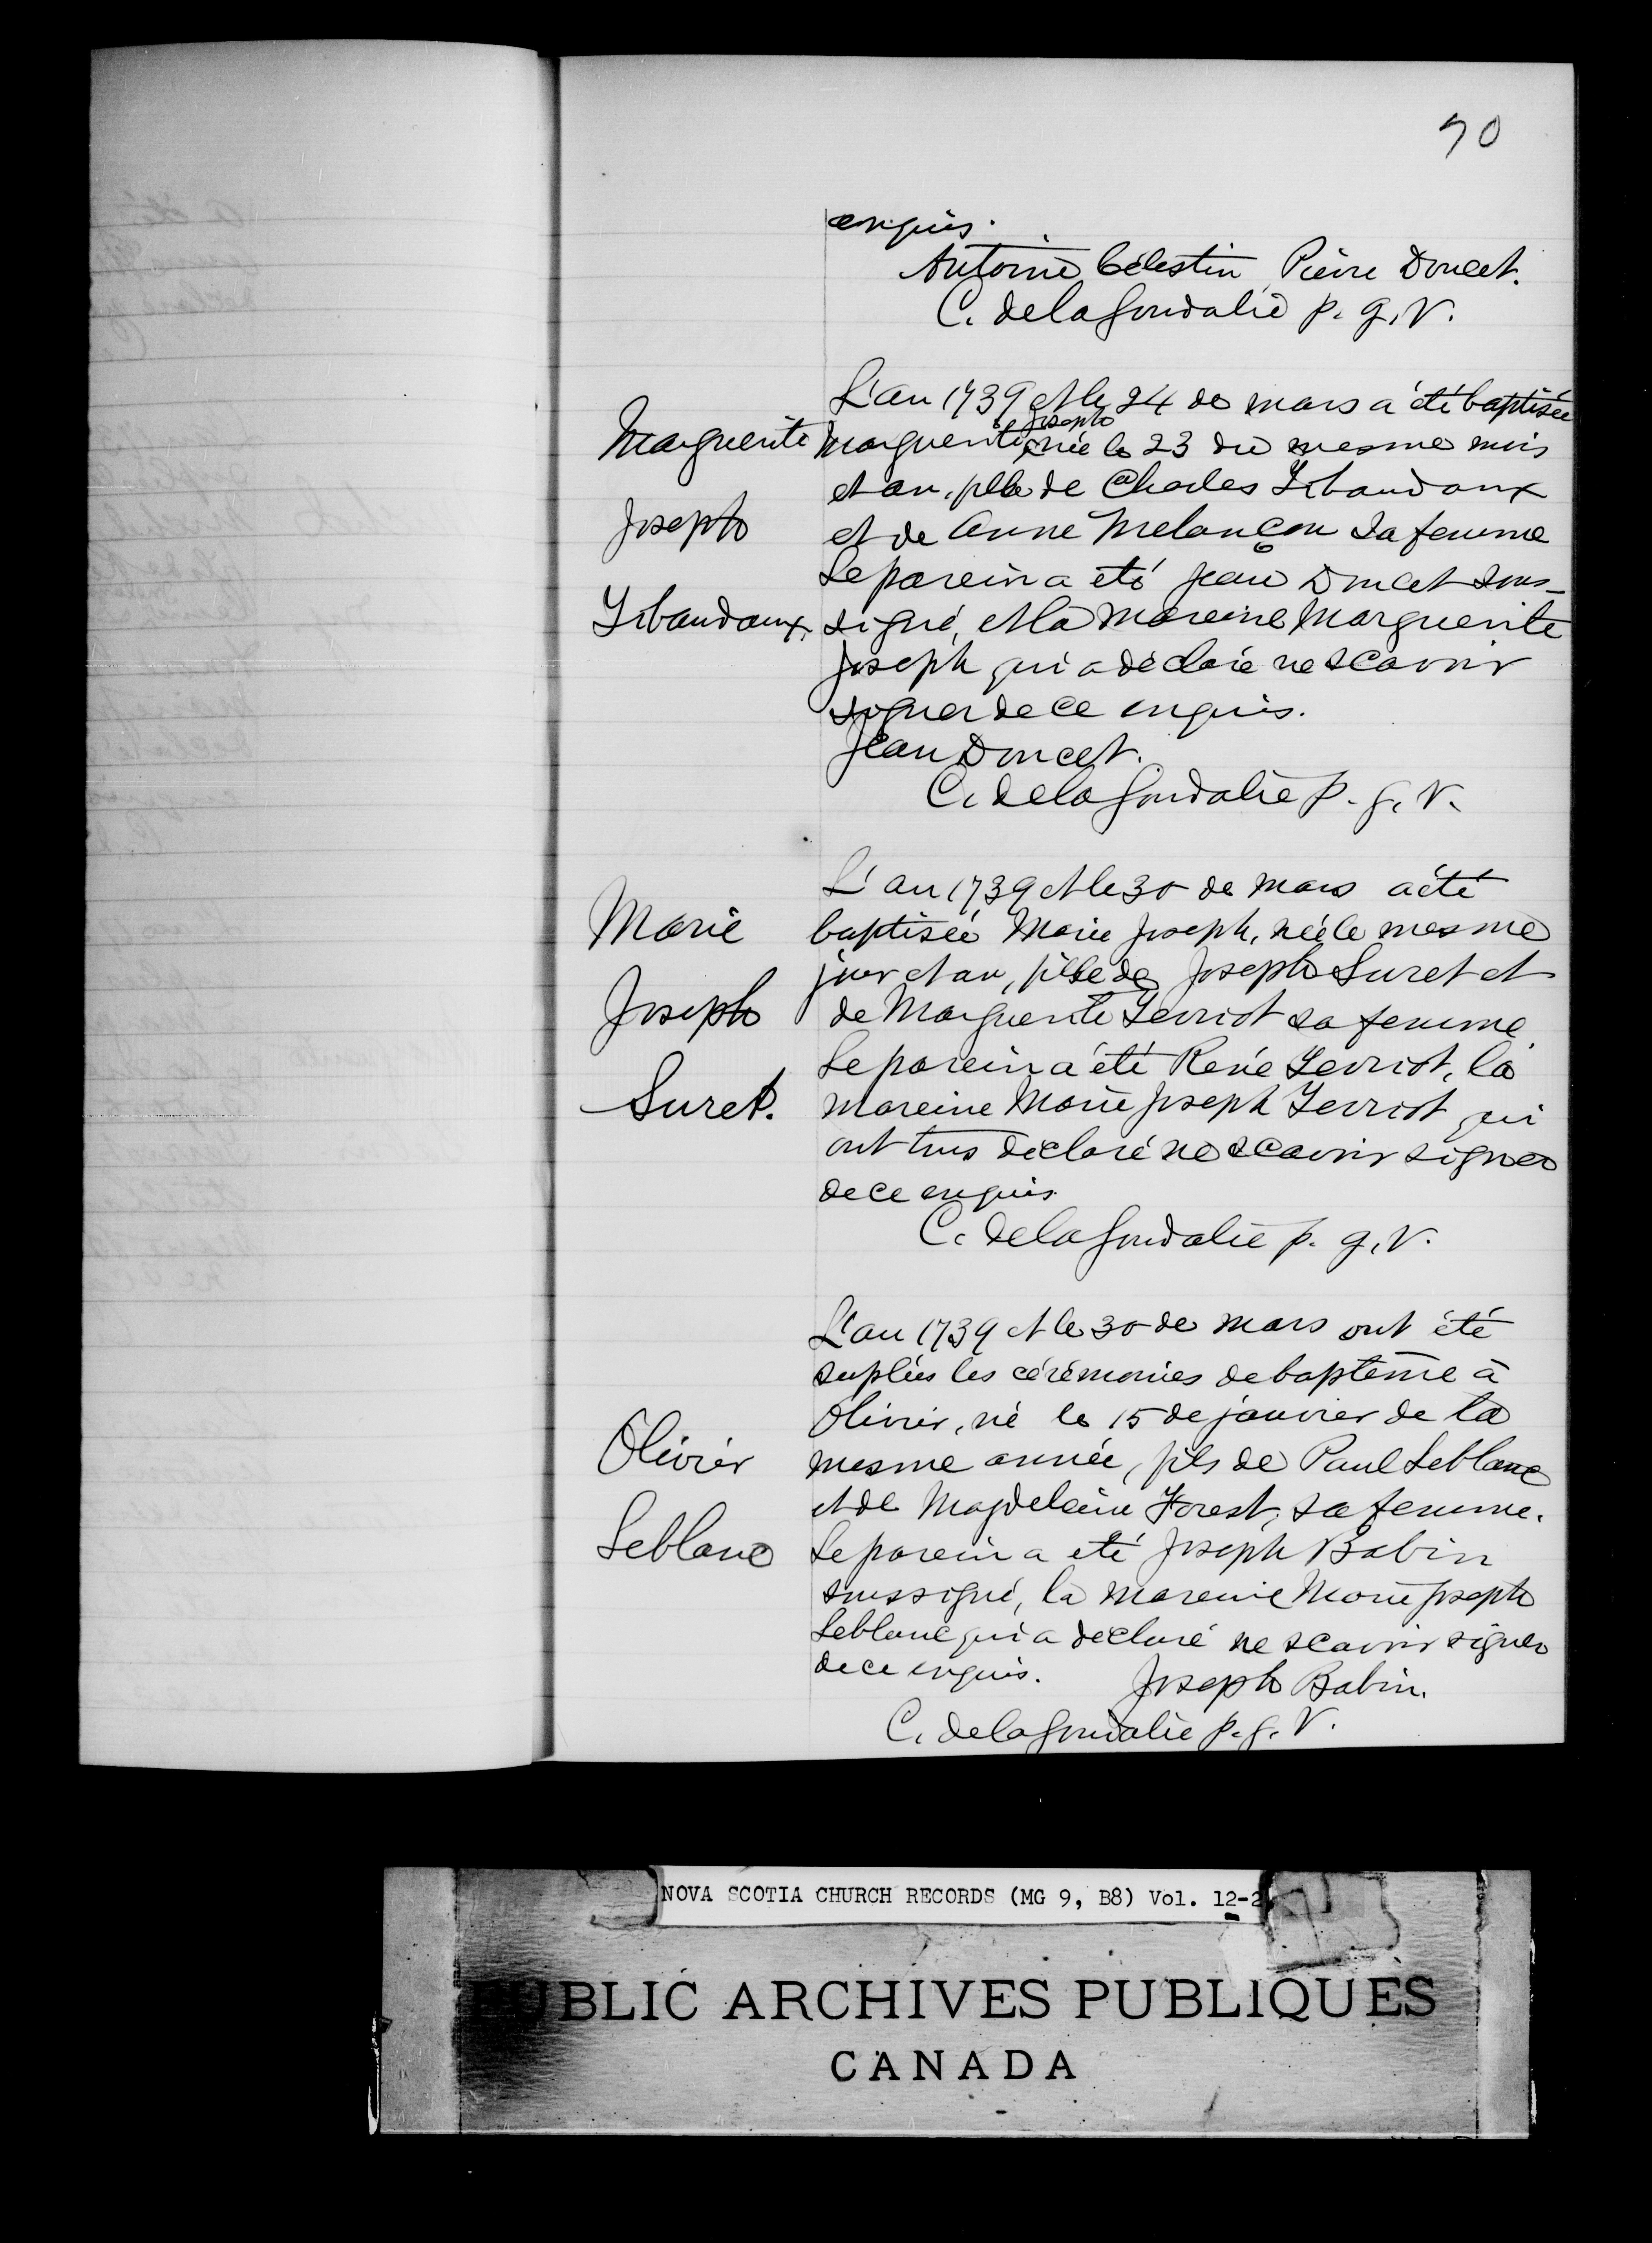 70
enquis.
Antoine Célestin, Pierre Doucet.
C. de la Goudalie p. g. V.
L'an 1739 et le 24 de mars a été baptisée
Marguerite Marguerite Joseph née le 23 du mesme mois
et an, fille de Charles Thibaudaux
Joseph et de Anne Melançon sa femme
Le parein a été Jean Doucet sous-
Thibaudaux. signé, et la mareine Marguerite
Joseph qui a déclaré ne scavoir
signer de ce enquis.
Jean Doucet.
C. de la Goudalie p. g. V.
L'an 1739 et le 30 de mars a été
Marie baptisée Marie Joseph, née le mesme
jour et an, fille de Joseph Suret et
Joseph de Marguerite Terriot sa femme
Le parein a été René Terriot, la
Suret. mareine Marie Joseph Terriot qui
ont tous déclaré ne scavoir signer
de ce enquis.
C. de la Goudalie p. g. V.
L'an 1739 et le 30 de mars ont été
suplées les cérémonies de baptême à
Olivier, né le 15 de janvier de la
Olivier mesme année, fils de Paul Leblanc
et de Magdeleine Forest, sa femme.
Leblanc Le parein a été Joseph Babin
soussigné, la mareine Marie Joseph
Leblanc qui a déclaré ne scavoir signer
de ce enquis. Joseph Babin.
C. de la Goudalie p. g. V.
NOVA SCOTIA CHURCH RECORDS (MG 9, B8) Vol. 12-2
PUBLIC ARCHIVES PUBLIQUES
CANADA